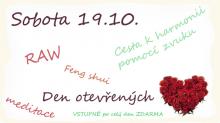 Sobota 19.10.
Cesta k harmonii
pomocí zvuku
RAW
Feng shui
Den otevřených
meditace
VSTUPNÉ po celý den ZDARMA